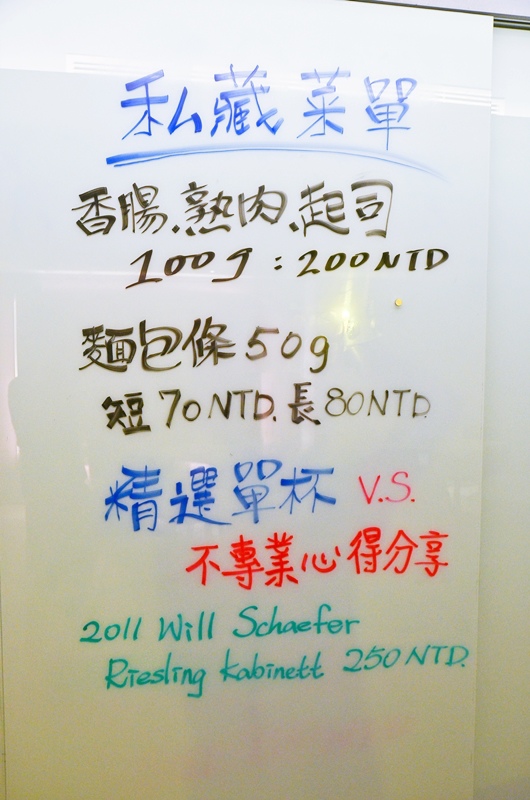 私藏菜單
香腸、熟肉、起司
100g:200NTD
麵包條50g
短70NTD.長80NTD.
精選單杯 V.S.
不專業心得分享
2011 Will Schaefer
Riesling Kabinett 250NTD.